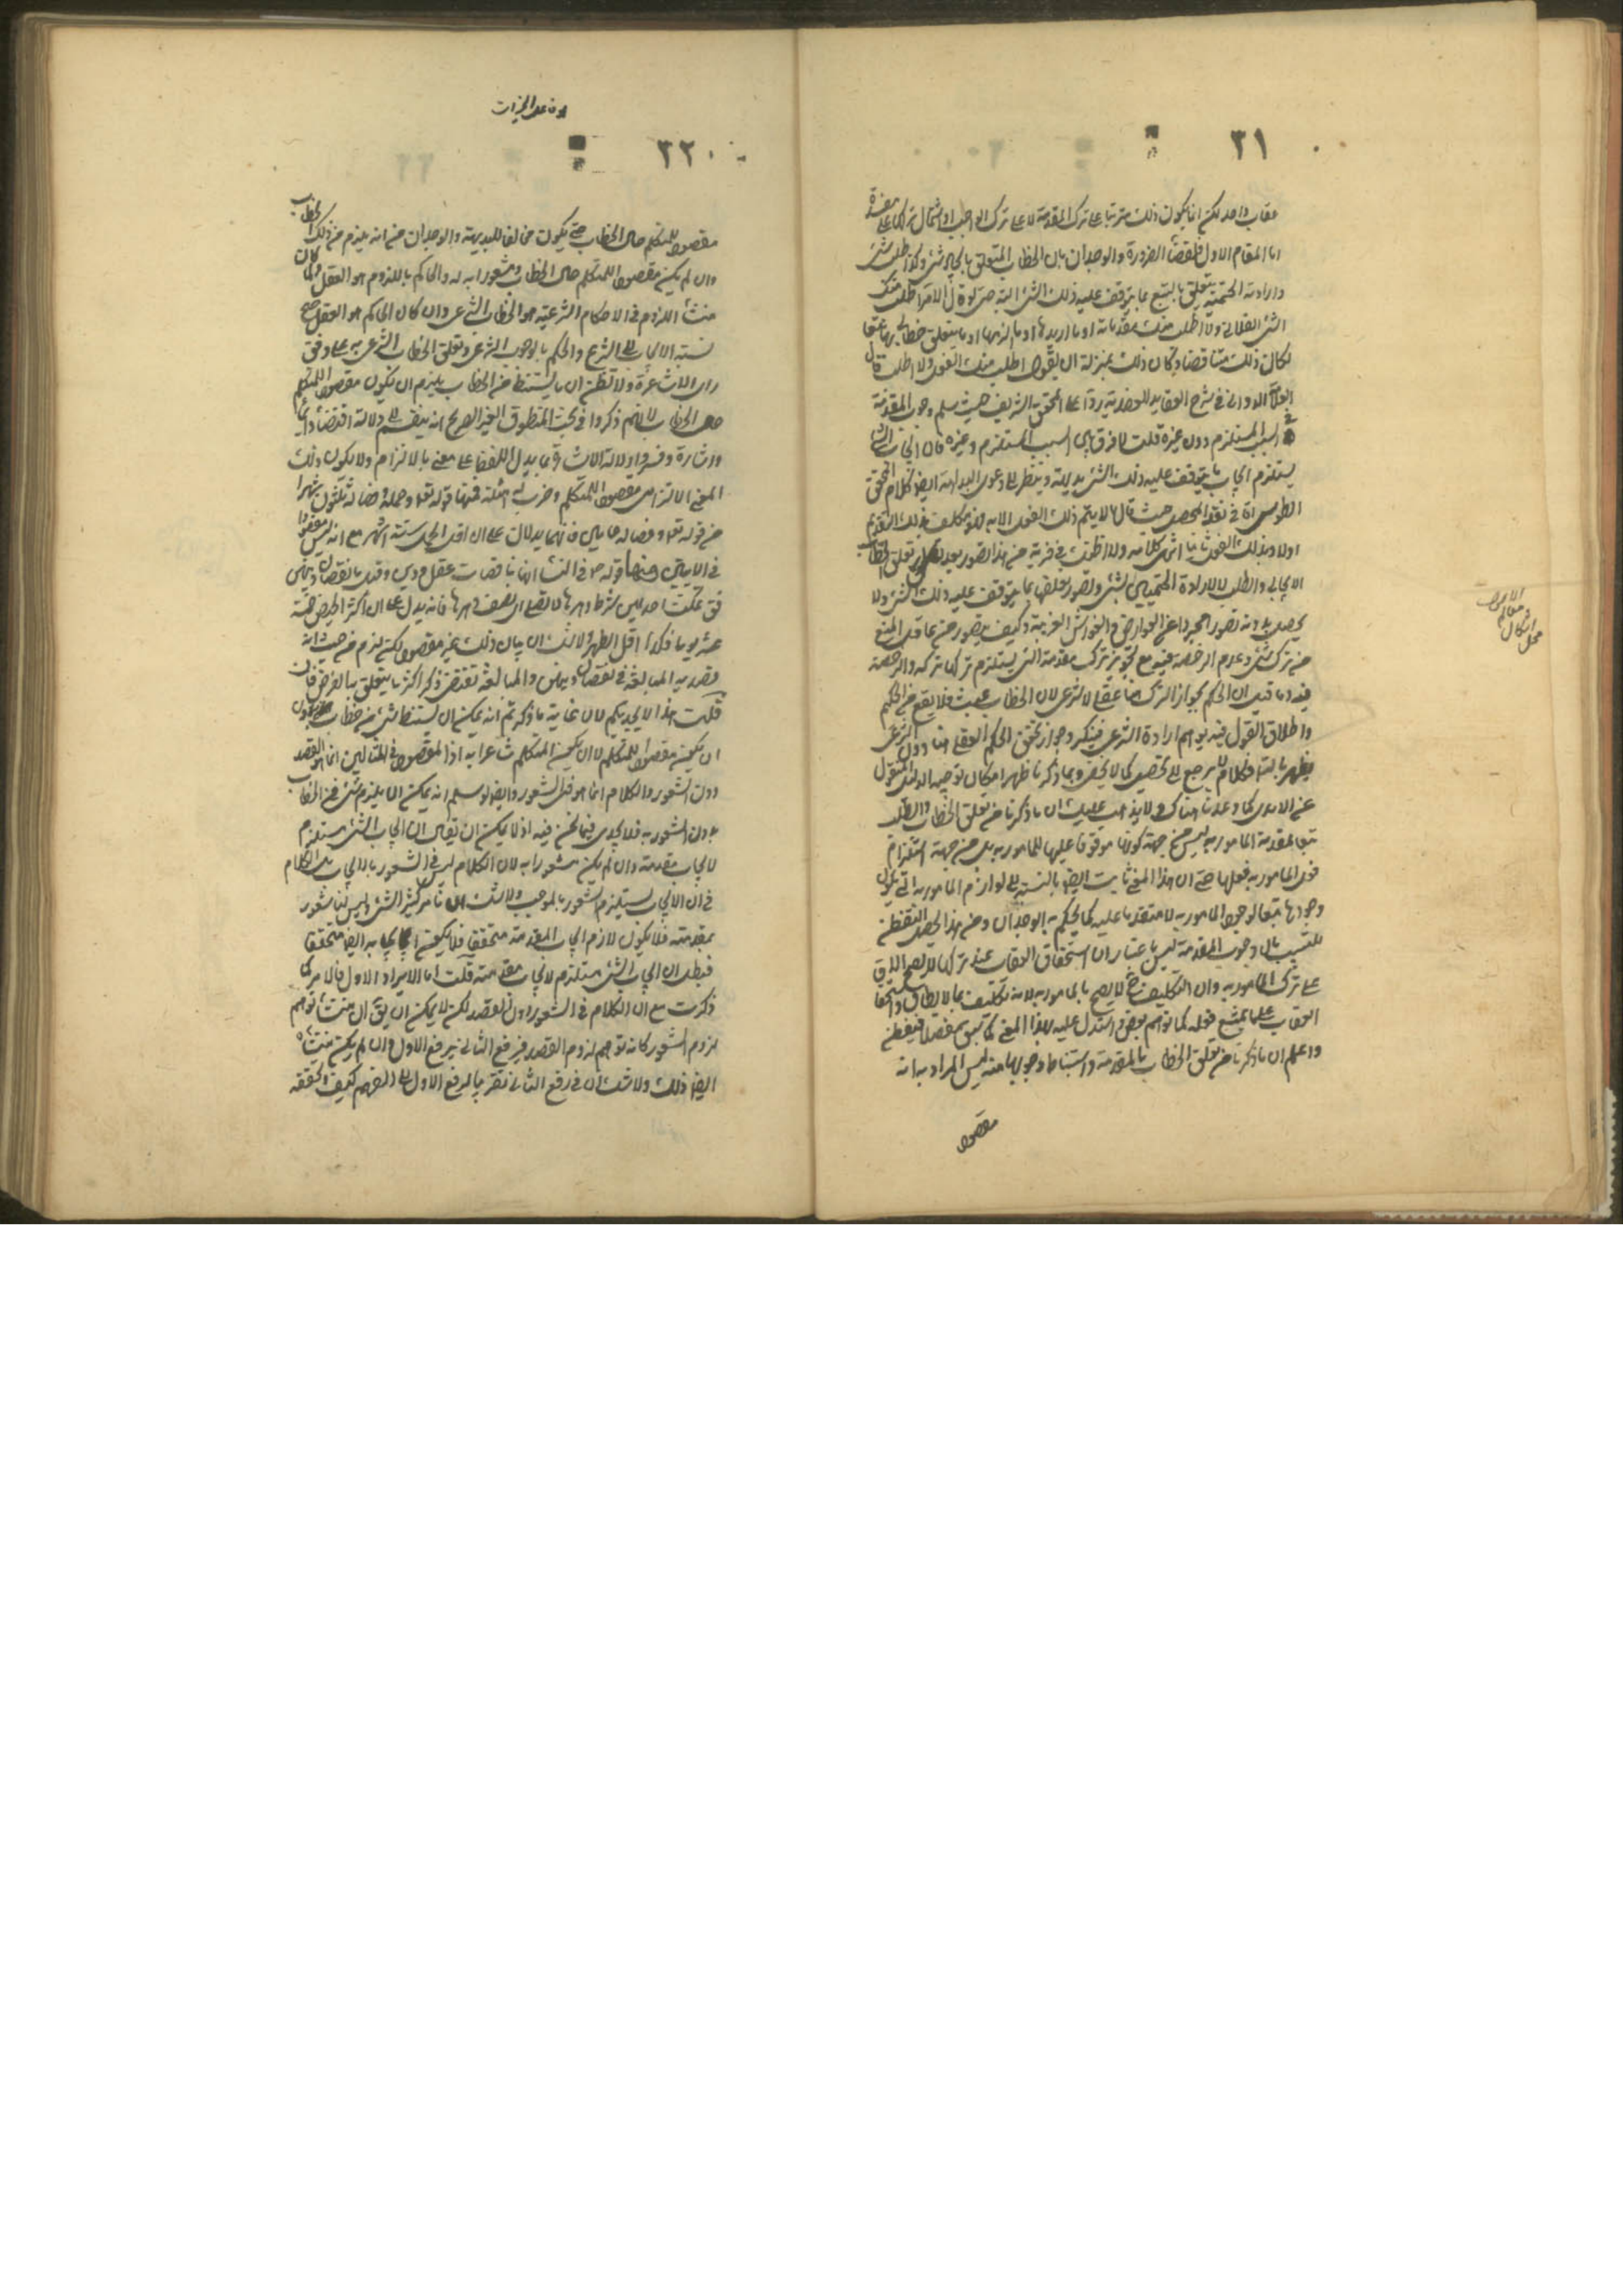 ٣١
عقاب واحد لكن انما يكون ذلك مترتبا على ترك المقدمة لا على ترك الواجب او اشتمال تركها على مفسدة
اما المقام الاول فلقضاء الضرورة والوجدان بان الخطاب المتعلق بايجاد شئ وكذا طلب شئ
وارادته الحتمية يتعلق بالتبع بما يتوقف عليه ذلك الشئ البتة حتى لو قال الامر اطلب منك
الشئ الفلانى ولا اطلب منك مقدماته او ما اريدها او ما الزمها او ما يتعلق خطابى بها تبعا
لكان ذلك متناقضا وكان ذلك بمنزلة ان يقول اطلب منك الفعل ولا اطلب قال
العلامة الدوانى فى شرح العقايد العضدية ردا على المحقق الشريف حيث سلم وجوب المقدمة
فى السبب المستلزم دون غيره قلت لا فرق بين السبب المستلزم وغيره فان ايجاب الشئ
يستلزم ايجاب ما يتوقف عليه ذلك الشئ بديهة وينظر الى دعوى البداهة ايضا كلام المحقق
الطوسى ره فى نقد المحصل حيث قال ما لا يتم ذلك الفعل الا به فهو مكلف بذلك التقديم
اولا وبذلك الفعل ثانيا انتهى كلامه ولا اظنك فى مرية من هذا تصور بعد تصور تعلق الخطاب
الايجابى والطلب والارادة الحتميين بشئ وتصور تعلقها بما يتوقف عليه ذلك الشئ ولا
يحصل بدونه تصورا مجردا عن العوارض والغواشى الغريبة وكيف يتصور من عاقل المنع
من ترك شئ وعدم الرخصة فيه مع تجويز ترك مقدمته التى يستلزم تركها تركه والرخصة
فيه وما قيل ان الحكم بجواز الترك هنا عقلى لا شرعى لان الخطاب به عبث فلا يقع من الحكيم
واطلاق القول فيه يوهم ارادة الشرعى فينكر وجواز تحقق الحكم العقلى هنا دون الشرعى
يظهر بالتامل فكلام لا يرجع الى تحصيل كما لا يخفى وبما ذكرنا ظهر امكان توجيه الدليل المنقول
عن الامدى كما وعدنا هناك ولا يذهب عليك ان ما ذكرنا من تعلق الخطاب والطلب
تبعا لمقدمة المامور به ليس من جهة كونها موقوفا عليها للمامور به بل من جهة استلزام
فعل المامور به فعلها حتى ان هذا المعنى ثابت ايضا بالنسبة الى لوازم المامور به التى يكون
وجودها تبعا لوجود المامور به لا متقدما عليه كما يحكم به الوجدان ومن هذا يحصل التفطن
للتسبب بان وجوب المقدمة ليس باعتبار ان استحقاق العقاب عند تركها لا يصح الا
على ترك المامور به وان التكليف ح لا يصح بالمامور به لانه تكليف بما لا يطاق واستحقاق
العقاب على ما يمتنع فعله كما توهم بعض واستدل عليه بهذا المعنى كما سبق مفصلا فتفطن
واعلم ان ما ذكرنا من تعلق الخطاب بالمقدمة واستنباط وجوبها منه ليس المراد به انه
مقصود
محل
اشكال
٢٢
مقصود للمتكلم حال الخطاب حتى يكون مخالفا للبديهة والوجدان من انه يلزم من ذلك الخطاب
وان لم يكن مقصودا للمتكلم حال الخطاب ومشعورا به له والحاكم باللزوم هو العقل ولما كان
منشأ اللزوم فى الاحكام الشرعية هو الخطاب الشرعى وان كان الحاكم هو العقل صح
نسبة الايجاب الى الشرع والحكم بالوجوب الشرعى وتعلق الخطاب الشرعى به على وفق
راى الاشاعرة ولا تظن ان ما يستنبط من الخطاب يلزم ان يكون مقصودا للمتكلم
حال الخطاب لانهم ذكروا فى بحث المنطوق الغير الصريح انه ينقسم الى دلالة اقتضاء وايماء
واشارة وفسروا دلالة الاشارة بما يدل اللفظ على معنى بالالتزام ولا يكون ذلك
المعنى الالتزامى مقصودا للمتكلم وضرب له امثلة فمنها قوله تعالى وحمله وفصاله ثلثون شهرا
مع قوله تعالى وفصاله فى عامين فانهما يدلان على ان اقل الحمل ستة اشهر مع انه ليس مقصودا
فى الايتين ومنها قوله ص فى النساء انها ناقصات عقل ودين وقيل ما نقصان دينهن
فقال تمكث احديهن شطر دهرها لا تصلى اى نصف دهرها فانه يدل على ان اكثر الحيض خمسة
عشر يوما وكذا اقل الطهر ولا شك ان بيان ذلك غير مقصود لكنه لزم من حيث انه
قصد به المبالغة فى نقصان دينهن والمبالغة تقتضى ذكر اكثر ما يتعلق بالغرض فان
قلت هذا لا يجديكم لان غاية ما ذكرتم انه يمكن ان يستنبط شئ من خطاب بدون
ان يكون مقصودا للمتكلم لا ان يكون المتكلم شاعرا به اذ المقصود فى المثالين انما هو القصد
دون الشعور والكلام انما هو فى الشعور وايضا لو سلم انه يمكن ان يلزم شئ من الخطاب
بدون الشعور به فلا يجدى فيما نحن فيه اذ لا يمكن ان يقال ان ايجاب الشئ مستلزم
لايجاب مقدمته وان لم يكن مشعورا به لان الكلام ليس فى الشعور بالايجاب بل الكلام
فى ان الايجاب يستلزم الشعور بالموجب ولا شك انا نامر كثيرا بشئ وليس لنا شعور
بمقدمته فلا يكون لازم ايجاب المقدمة متحققا فلا يكون ايجابها به ايضا متحققا
فبطل ان ايجاب الشئ مستلزم لايجاب مقدمته قلت اما الايراد الاول فالامر كما
ذكرت مع ان الكلام فى الشعور دون القصد لكن لا يمكن ان يق ان منشأ توهم
لزوم الشعور كانه توهم لزوم القصد فبرفع الثانى يرفع الاول وان لم يكن منشأه
ايضا ذلك ولا شك ان فى رفع الثانى تقريبا لرفع الاول الى الفهم كيف وتحققه